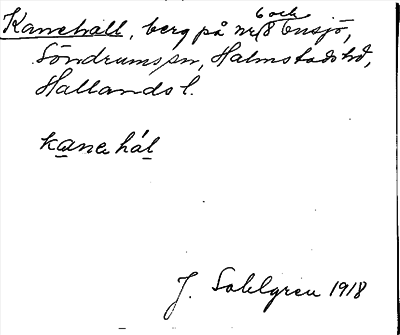 Kanehall, berg på nr 6 och 8 Ensjö,
Söndrums sn, Halmstads hd,
Hallands l.
kane hál
J. Sahlgren 1918